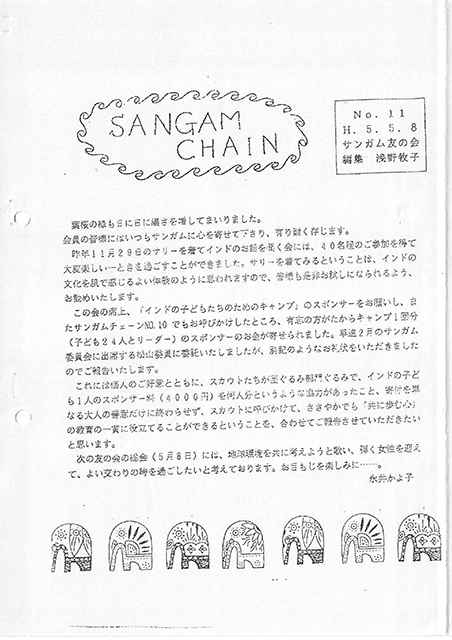 SANGAM
CHAIN
No. 11
H. 5. 5. 8
サンガム友の会
編集 浅野牧子
葉桜の緑も日に日に濃さを増してまいりました。
会員の皆様にはいつもサンガムに心を寄せて下さり、有り難く存じます。
昨年11月29日のサリーを着てインドのお話を聞く会には、40名程のご参加を得て
大変楽しい一ときを過ごすことができました。サリーを着てみるということは、インドの
文化を肌で感じるよい体験のように思われますので、皆様も是非お試しになられるよう、
お勧めいたします。
この会の席上、「インドの子どもたちのためのキャンプ」のスポンサーをお願いし、ま
たサンガムチェーンNO.10でもお呼びかけしたところ、有志の方がたからキャンプ1回分
(子ども24人とリーダー)のスポンサーのお金が寄せられました。早速2月のサンガム
委員会に出席する松山委員に委託いたしましたが、別記のようなお礼状をいただきました
のでご報告いたします。
これには個人のご好意とともに、スカウトたちが団ぐるみ部門ぐるみで、インドの子ど
も1人のスポンサー料(4000円)を何人分というような協力があったこと、寄付を単
なる大人の善意だけに終わらせず、スカウトに呼びかけて、ささやかでも「共に歩む心」
の教育の一翼に役立てることができるということを、合わせてご報告させていただきたい
と思います。
次の友の会の総会(5月8日)には、地球環境を共に考えようと歌い、弾く女性を迎え
て、よい交わりの時を過ごしたいと考えております。お目もじを楽しみに……。
永井かよ子